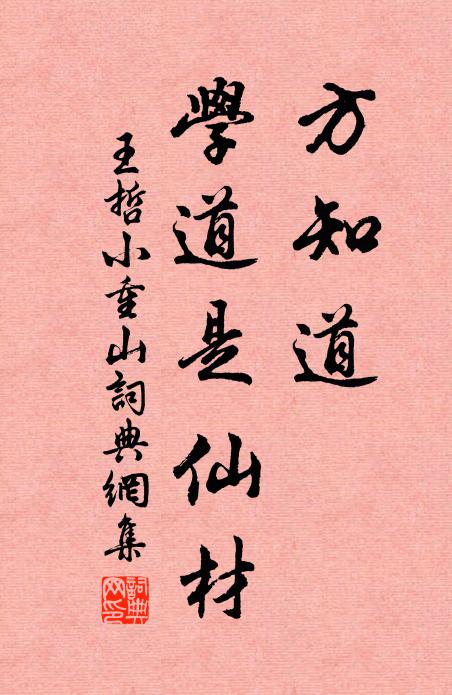 方知道
學道是仙材
王哲小重山詞典網集
詞典网印